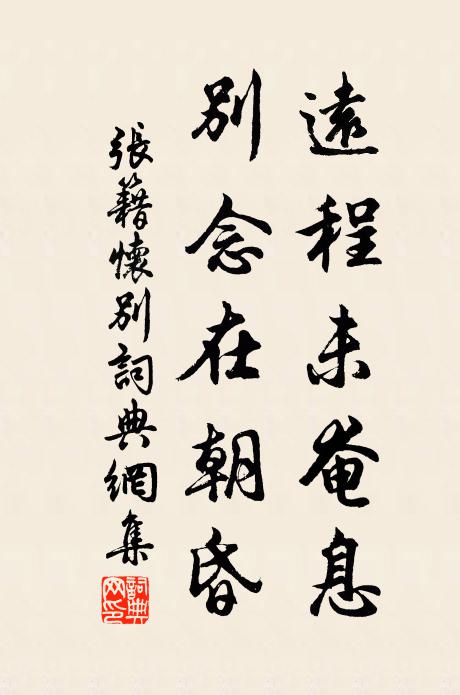 遠程未奄息
別念在朝昏
張籍懷別詞典網集
詞典网印